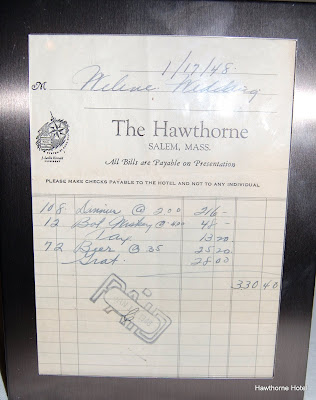 1/17/48
M Wedding
The Hawthorne
SALEM, MASS.
All Bills are Payable on Presentation
PLEASE MAKE CHECKS PAYABLE TO THE HOTEL AND NOT TO ANY INDIVIDUAL
108 Dinners @ 2 00 216 -
12 Bot Whiskey @ 400 48 -
Tax 13 20
72 Beer @ 35 25 20
Grat. 28 00
330 40
PAID
Hawthorne Hotel